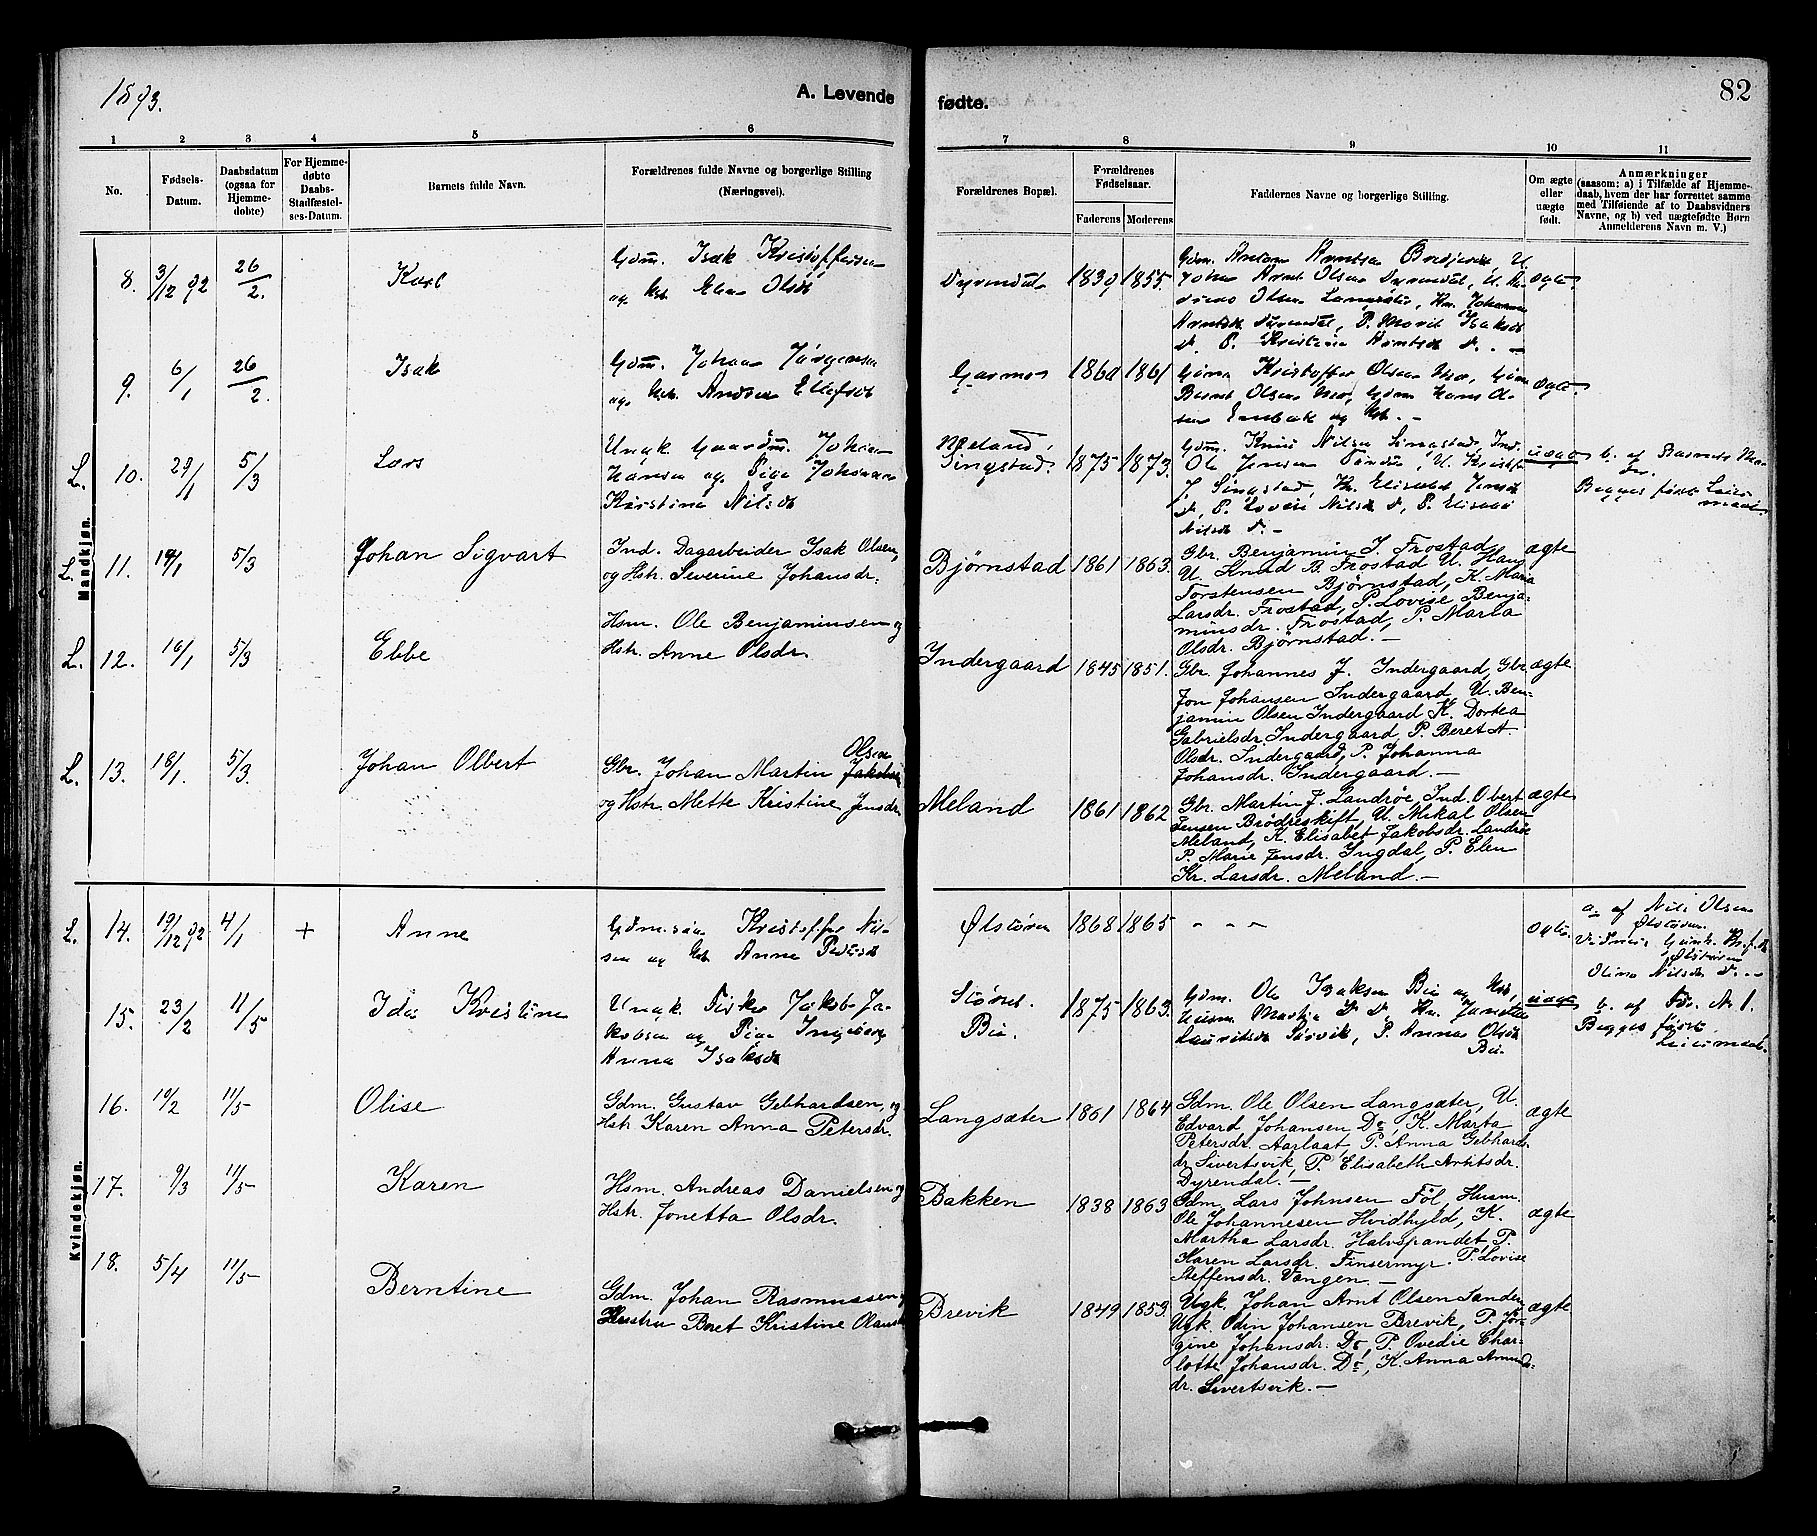 1893.
A. Levende
fødte.
82
1 2 3 4 5 6
7 8 9 10 11
No.
Fødsels-
Datum.
Daabsdatum
(ogsaa for
Hjemme-
døbte)
For Hjemme-
døbte
Daabs-
Stadfæstel-
ses-Datum.
Barnets fulde Navn.
Forældrenes fulde Navne og borgerlige Stilling
(Næringsvei).
Forældrenes Bopæl.
Forældrenes
Fødselsaar.
Faderens Moderens
Faddernes Navne og borgerlige Stilling.
Om ægte
eller
uægte
født.
Anmærkninger
(saasom: a) i Tilfælde af Hjemme-
daab, hvem der har forrettet samme
med Tilføiende af to Daabsvidners
Navne, og b) ved uægtefødte Børn
Anmelderens Navn m. V.)
Mandkjøn.
8. 3/12 92 26/2.
Karl
Gdm. Isak Kristoffersen
og Elen Olsdt
Dyrendal 1839 1855.
Gdm. Anton Arntsen U.
Johan Arnt Olsen Dyrendal, U.
Olsen Langsæter, Johanna
Arntsdt Dyrendal, P. Marit Isaksdt
d. P. Kristine Arntsdt d. -
ægte
9. 6/1 26/2.
Isak
Gdm. Johan Jørgensen
og Ellefsdt
Garmo 1860 1861
Kristoffer Olsen Moe,
Bernt Olsen Moe, Hans Ol-
sen og -
ægte
L. 10. 29/1 5/3
Lars
Ungk. Gaardm. Johan
Hansen og Pige Johanna
Kirstine Nilsdt
Meland,
Singstad. 1875 1873.
Gdm. Knut Nilsen Singstad, Ind.
Ole Jensen U. Kristofer
J. Singstad, Elisabet Jensdt
d, P. Nilsdt d, P.
Nilsdt d. -
uægte
b. af
Begges første Leier-
maal.
L. 11. 14/1 5/3
Johan Sigvart
Ind. Dagarbeider Isak Olsen,
og Hstr. Severine Johansdr.
Bjørnstad 1861 1863.
Gbr. Benjamin J. Frostad,
U. Knud B. Frostad U. Hans
Torstensen Bjørnstad, K. Maria
Larsdr. Frostad, P. Lovise Benja-
minsdr. Frostad, P. Marta
Olsdr. Bjørnstad. -
ægte
L. 12. 16/1 5/3
Ebbe
Hsm. Ole Benjaminsen og
Hstr. Anne Olsdr.
Indergaard 1845 1851.
Gbr. Johannes J. Indergaard, Gbr
Jon Johansen Indergaard, U. Ben-
jamin Olsen Indergaard K. Dortea
Gabrielsdr. Indergaard, P. Beret A.
Olsdr. Indergaard, P. Johanna
Johansdr. Indergaard. -
ægte
L. 13. 18/1. 5/3.
Johan Olbert
Olsen
Gbr. Johan Martin
og Hstr. Mette Kristine Jensdr
Meland 1861 1862
Gbr. Martin J. Landrøe, Ind. Obert
Jensen Brødreskift, U. Mikal Olsen
Meland, K. Elisabet Jakobsdr. Landrøe
P. Marie Jensdr. Ingdal, P. Elen
Kr. Larsdr. Meland. -
ægte
Kvindekjøn.
L. 14. 19/12 92 4/1 +
Anne
Gdm.søn Kristoffer Nil-
sen og Anne
Ølstøren 1868 1865
- - -
ægte
a. af Nils Olsen
Ølstøren.
Ølstøren
Olina Nilsdt d. -
15. 23/2 11/5
Ida Kristine
Ungk. Fisker Jakob Ja-
kobsen og Pige Ingeborg
Anna Isaksdt
Støren.
Bie. 1875 1863.
Gdm. Ole Isaksen Bie og
Martha
Lauritsdt P. Anna Olsdt
Bie.
uægte
b. af No. 1.
Begges første
Leiermaal.
16. 10/2 11/5
Olise
Gdm. Gustav Gebhardsen, og
Hstr. Karen Anna Petersdr.
Langsæter 1861 1864
Gdm. Ole Olsen Langsæter, U.
Edvard Johansen Do, K. Marta
Petersdr. Aarlaat, P. Anna Gebhards-
dr. Sivertsvik, P. Elisabeth Arntsdr.
Dyrendal. -
ægte
17. 9/3 11/5
Karen
Hsm. Andreas Danielsen og
Hstr. Jonetta Olsdr.
Bakken 1838 1863
Gdm. Lars Johnsen Föl, Husm.
Ole Johannesen Hvidhyld, K.
Martha Larsdr. Halvspandet P.
Karen Larsdr. Finsermyr. P. Lovise
Steffensdr. Vangen. -
ægte
18. 5/4 11/5
Berntine
Gdm. Johan Rasmussen og
Hustru Beret Kristine
Brevik 1849 1853.
Ugk. Johan Arnt Olsen
Ugk. Odin Johansen Brevik, P. Jör-
gine Johansdr. Do, P. Ovedie Char-
lotte Johansdr. Do, K. Anna
dr. Sivertsvik. -
ægte